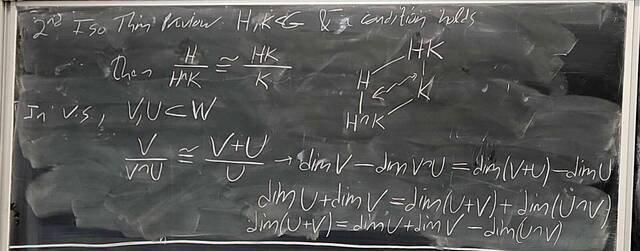 2nd Iso Thm Preview. H, K < G & a condition holds
Then H/H∩K ≅ HK/K
HK
H
K
H∩K
In v.s., V, U ⊂ W
V/V∩U ≅ V+U/U → dim V − dim V∩U = dim(V+U) − dim U
dim U + dim V = dim(U+V) + dim(U∩V)
dim(U+V) = dim U + dim V − dim(U∩V)